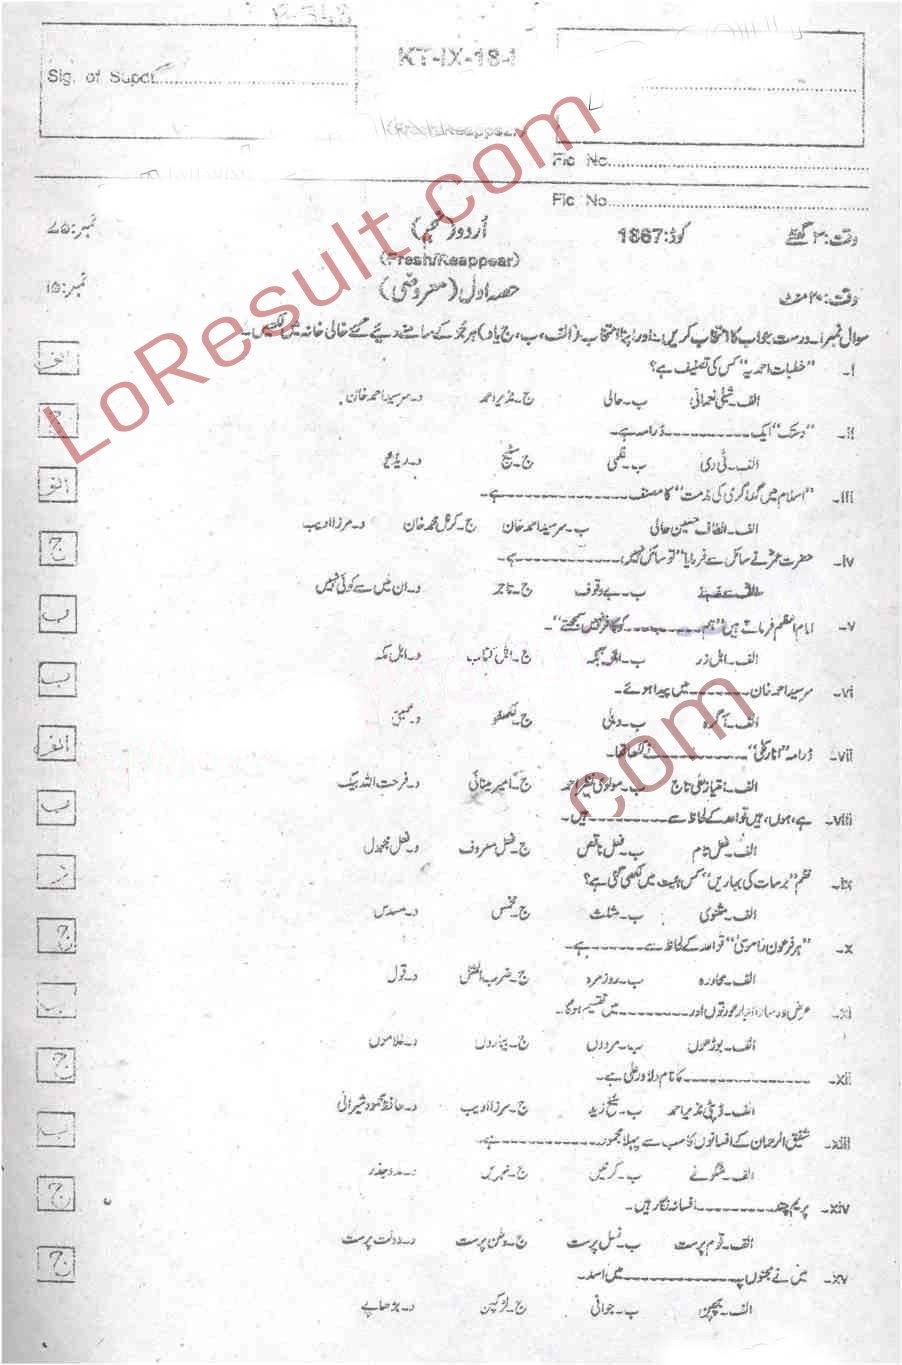 KT-IX-18-I
Sig. of Supdt.
Fic No.
Fic No.
وقت: ۳ گھنٹے کوڈ: 1867 اُردو (نہم) نمبر: ۷۵
(Fresh/Reappear)
وقت: ۲۰ منٹ حصہ اول (معروضی) نمبر: ۱۵
سوال نمبر ۱۔ درست جواب کا انتخاب کریں اور اپنا انتخاب (الف، ب، ج یا د) ہر جُز کے سامنے دیئے گئے خالی خانہ میں لکھیں۔
i۔ "خطبات احمدیہ" کس کی تصنیف ہے؟ الف
الف۔ شبلی نعمانی ب۔ حالی ج۔ نذیر احمد د۔ سرسید احمد خان
ii۔ "دستک" ایک ---------- ڈرامہ ہے۔ ج
الف۔ ٹی وی ب۔ فلمی ج۔ سٹیج د۔ ریڈیو
iii۔ "اسلام میں گداگری کی مذمت" کا مصنف ---------- ہے۔ الف
الف۔ الطاف حسین حالی ب۔ سرسید احمد خان ج۔ کرنل محمد خان د۔ مرزا ادیب
iv۔ حضرت عمرؓ نے سائل سے فرمایا "تو سائل نہیں، ---------- ہے۔ ج
ب۔ بے وقوف ج۔ تاجر د۔ ان میں سے کوئی نہیں
v۔ امام اعظم فرماتے ہیں "ہم ---------- کو کافر نہیں سمجھتے"۔ ب
الف۔ اہل زر ب۔ اہل قبلہ ج۔ اہل کتاب د۔ اہل مکہ
vi۔ سرسید احمد خان ------- میں پیدا ہوئے۔ ب
الف۔ آگرہ ب۔ دہلی ج۔ لکھنؤ د۔ ممبئی
vii۔ ڈرامہ "انارکلی" ---------- نے لکھا تھا۔ الف
الف۔ امتیاز علی تاج ب۔ مولوی نذیر احمد ج۔ امیر مینائی د۔ فرحت اللہ بیگ
viii۔ ہے، ہوں، ہیں قواعد کے لحاظ سے ---------- ہیں۔ ب
الف۔ فعل تام ب۔ فعل ناقص ج۔ فعل معروف د۔ فعل مجہول
ix۔ نظم "برسات کی بہاریں" کس ہیئت میں لکھی گئی ہے؟
الف۔ مثنوی ب۔ مثلث ج۔ مخمس د۔ مسدس
x۔ "ہر فرعون را موسیٰ" قواعد کے لحاظ سے ------- ہے۔ ج
الف۔ محاورہ ب۔ روزمرہ ج۔ ضرب المثل د۔ قول
xi۔ عورتوں اور ---------- میں تقسیم ہوگا۔ ب
الف۔ بوڑھوں ب۔ مردوں ج۔ بیماروں د۔ غلاموں
xii۔ ---------- کا نام دلاور علی ہے۔ ج
الف۔ ڈپٹی نذیر احمد ب۔ شیخ زید ج۔ مرزا ادیب د۔ حافظ محمود شیرانی
xiii۔ شفیق الرحمان کے افسانوں کا سب سے پہلا مجموعہ ---------- ہے۔ ب
الف۔ شگوفے ب۔ کرنیں ج۔ لہریں د۔ مدوجذر
xiv۔ پریم چند ---------- افسانہ نگار ہیں۔ ج
الف۔ قوم پرست ب۔ نسل پرست ج۔ وطن پرست د۔ دولت پرست
xv۔ میں نے مجنوں پہ ---------- میں اسد۔ ج
الف۔ بچپن ب۔ جوانی ج۔ لڑکپن د۔ بڑھاپے
LoResult.com
com